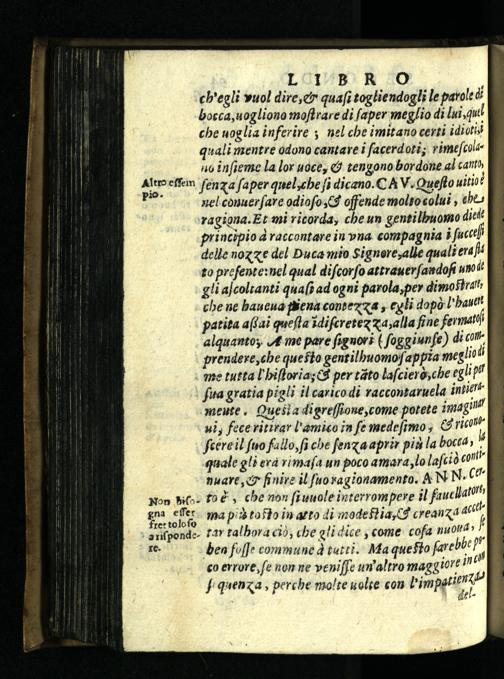 LIBRO
ch'egli vuol dire,& quasi togliendogli le parole di
bocca,uogliono mostrare di saper meglio di lui,quel
che uoglia inferire ; nel che imitano certi idioti,i
quali mentre odono cantare i sacerdoti; rimescola-
no insieme la lor uoce, & tengono bordone al canto,
Altro essem
pio.
senza saper quel,che si dicano.CAV.Questo uitio è
nel conuersare odioso,& offende molto colui, che
ragiona.Et mi ricorda, che un gentilhuomo diede
principio à raccontare in vna compagnia i successi
delle nozze del Duca mio Signore,alle quali era sta
to presente:nel qual discorso attrauersandosi uno de
gli ascoltanti quasi ad ogni parola,per dimostrare,
che ne haueua piena contezza, egli dopò l'hauere
patita assai questa idiscretezza,alla fine fermatosi
alquanto; A me pare signori (soggiunse) di com-
prendere,che questo gentilhuomo sappia meglio di
me tutta l'historia;& per tāto lascierò,che egli per
sua gratia pigli il carico di raccontaruela intiera-
mente. Questa digressione,come potete imaginar
ui, fece ritirar l'amico in se medesimo, & ricono-
scere il suo fallo,si che senza aprir più la bocca, la
quale gli era rimasa un poco amara,lo lasciò conti-
nuare,& finire il suo ragionamento. ANN. Cer-
Non biso-
gna esser
frettoloso
a risponde-
re.
to è, che non si uuole interrompere il fauellatore,
ma più tosto in atto di modestia,& creanza accet-
tar talhora ciò, che gli dice, come cosa nuoua, se
ben fosse commune à tutti. Ma questo sarebbe po-
co errore,se non ne venisse un'altro maggiore in con
sequenza, perche molte uolte con l'impatienza
del-